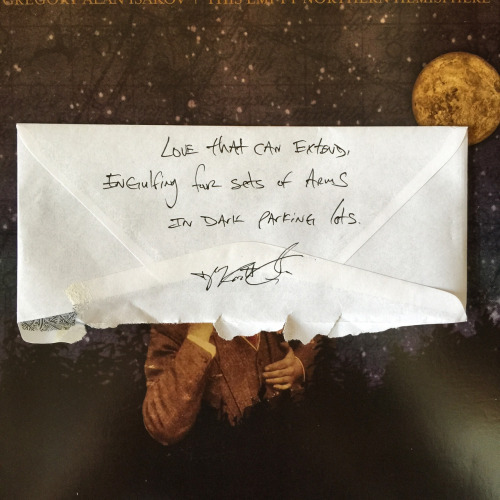 GREGORY ALAN ISAKOV | THIS EMPTY NORTHERN HEMISPHERE
Love that can Extend,
Engulfing four sets of Arms
In Dark Parking lots.